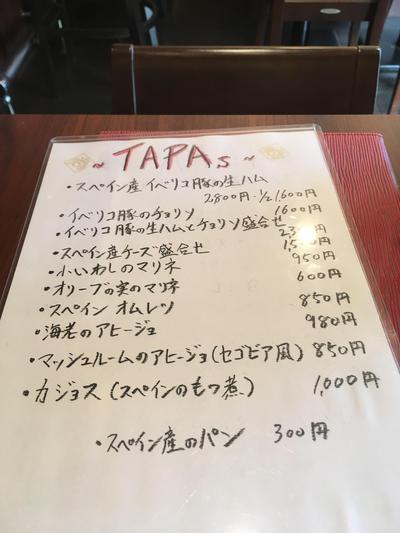 ~ TAPAs ~
・スペイン産 イベリコ豚の生ハム
2,800円・½1,600円
・イベリコ豚のチョリソ 1600円
・イベリコ豚の生ハムとチョリソ盛合せ
・スペイン産チーズ盛合せ
・小いわしのマリネ 950円
・オリーブの実のマリネ 600円
・スペイン オムレツ 850円
・海老のアヒージョ 980円
・マッシュルームのアヒージョ(セゴビア風) 850円
・カジョス (スペインのもつ煮) 1,000円
・スペイン産のパン 300円